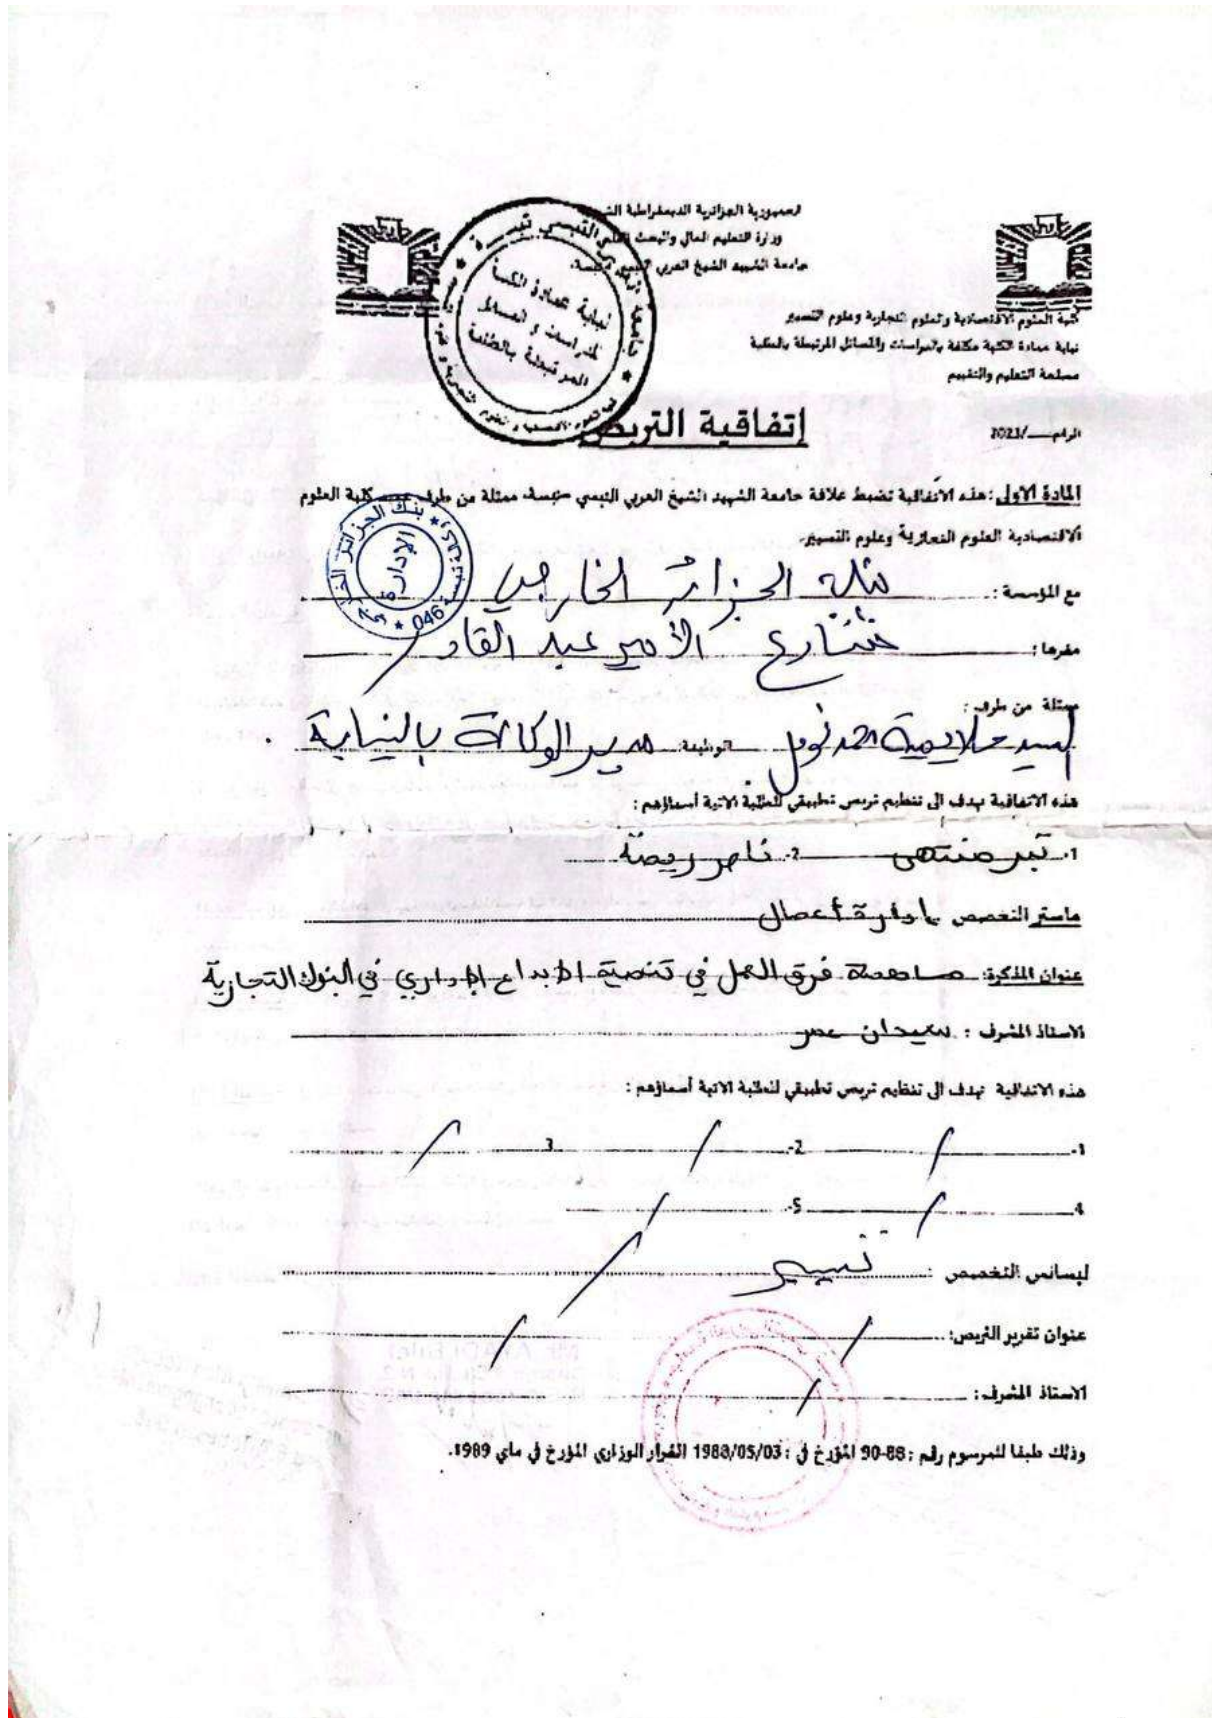 الجمهورية الجزائرية الديمقراطية
وزارة التعليم العالي والبحث العلمي
جامعة الشهيد الشيخ العربي التبسي -تبسة-
كلية العلوم الاقتصادية والعلوم التجارية وعلوم التسيير
نيابة عمادة الكلية مكلفة بالدراسات والمسائل المرتبطة بالطلبة
مصلحة التعليم والتقييم
نيابة عمادة الكلية
للدراسات و المسائل
المرتبطة بالطلبة
الرقم /2023
إتفاقية التربص
المادة الأولى: هذه الاتفاقية تضبط علاقة جامعة الشهيد الشيخ العربي التبسي -تبسة، ممثلة من طرف عميد كلية العلوم
الاقتصادية العلوم التجارية وعلوم التسيير
بنك الجزائر الخارجي
الإدارة
046
مع المؤسسة: بنك الجزائر الخارجي
مقرها: شارع الأمير عبد القادر
ممثلة من طرف:
السيد الوظيفة: مدير الوكالة بالنيابة .
هذه الاتفاقية تهدف الى تنظيم تربص تطبيقي للطلبة الاتية أسماؤهم:
1. تبر منتهى 2-
ماستر التخصص إدارة أعمال
عنوان المذكرة: مساهمة فرق العمل في تنمية الإبداع الإداري في البنوك التجارية
الاستاذ المشرف : سعيدان عمر
هذه الاتفاقية تهدف الى تنظيم تربص تطبيقي للطلبة الاتية أسماؤهم:
1- / 2- / 3 /
4 / 5- /
ليسانس التخصص : تسيير /
عنوان تقرير التربص: / /
الاستاذ المشرف: /
وذلك طبقا للمرسوم رقم : 88-90 المؤرخ في : 1988/05/03 القرار الوزاري المؤرخ في ماي 1989.